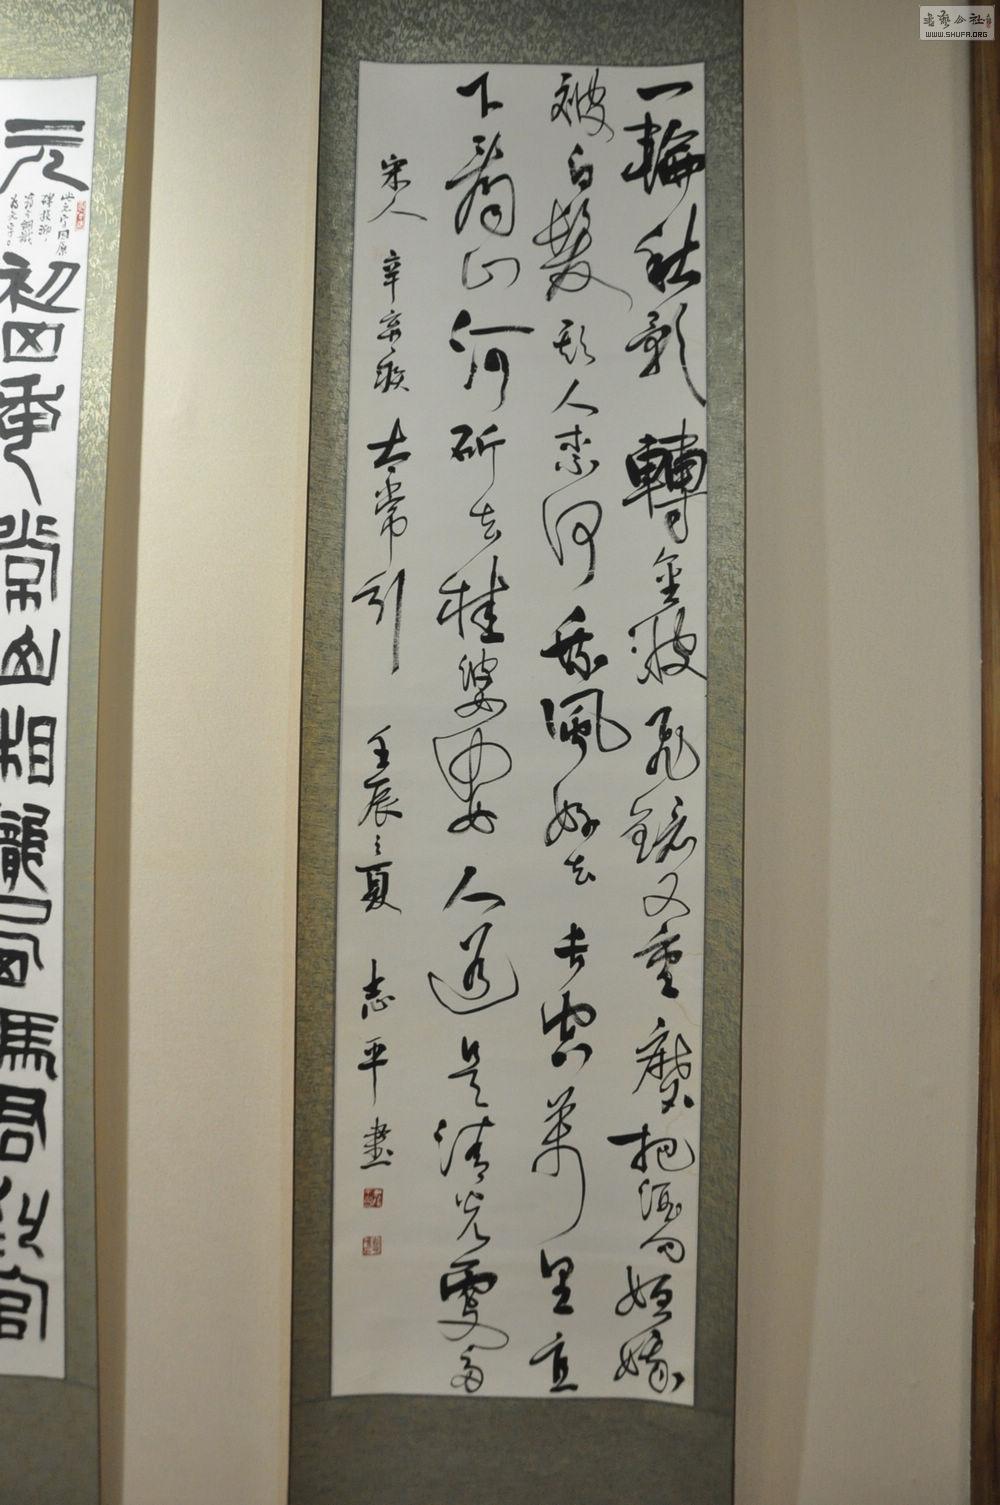 一輪秋影轉金波飛鏡又重磨把酒問姮娥
被白髮欺人奈何乘風好去長空萬里直
下看山河斫去桂婆娑人道是清光更多
宋人辛弃疾太常引 壬辰之夏 志平書
元初四年常山相隴西馮君到官
书艺公社
WWW.SHUFA.ORG